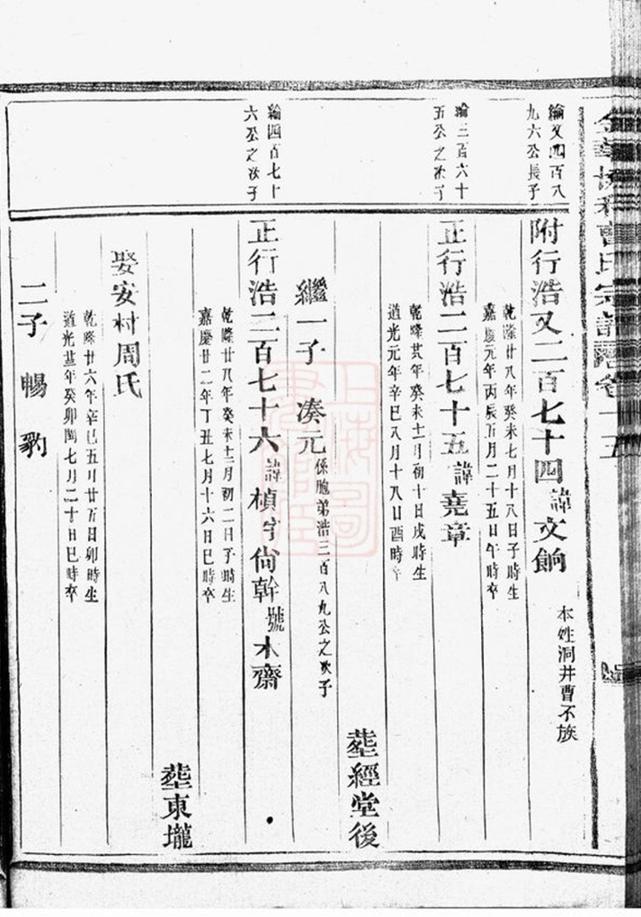 金華 曹氏宗譜卷十五
綸又四百八
九六公長子
附行浩又二百七十四諱文餉
本姓洞井曹不族
乾隆廿八年癸未七月十八日子時生
嘉慶元年丙辰五月二十五日午時卒
綸三百六十
五公之次子
正行浩二百七十五諱堯章
乾隆廿八年癸未十二月初十日戌時生
道光元年辛巳八月十八日酉時卒
塟經堂後
繼一子 湊元係胞弟浩三百八九公之次子
綸四百七十
六公之次子
正行浩二百七十六諱楨字尙幹號木齋
乾隆廿八年癸未十二月初二日子時生
嘉慶廿二年丁丑七月十六日巳時卒
塟東壠
娶安村周氏
乾隆廿六年辛巳五月廿五日卯時生
道光廿三年癸卯閏七月二十日巳時卒
二子 暢 豹